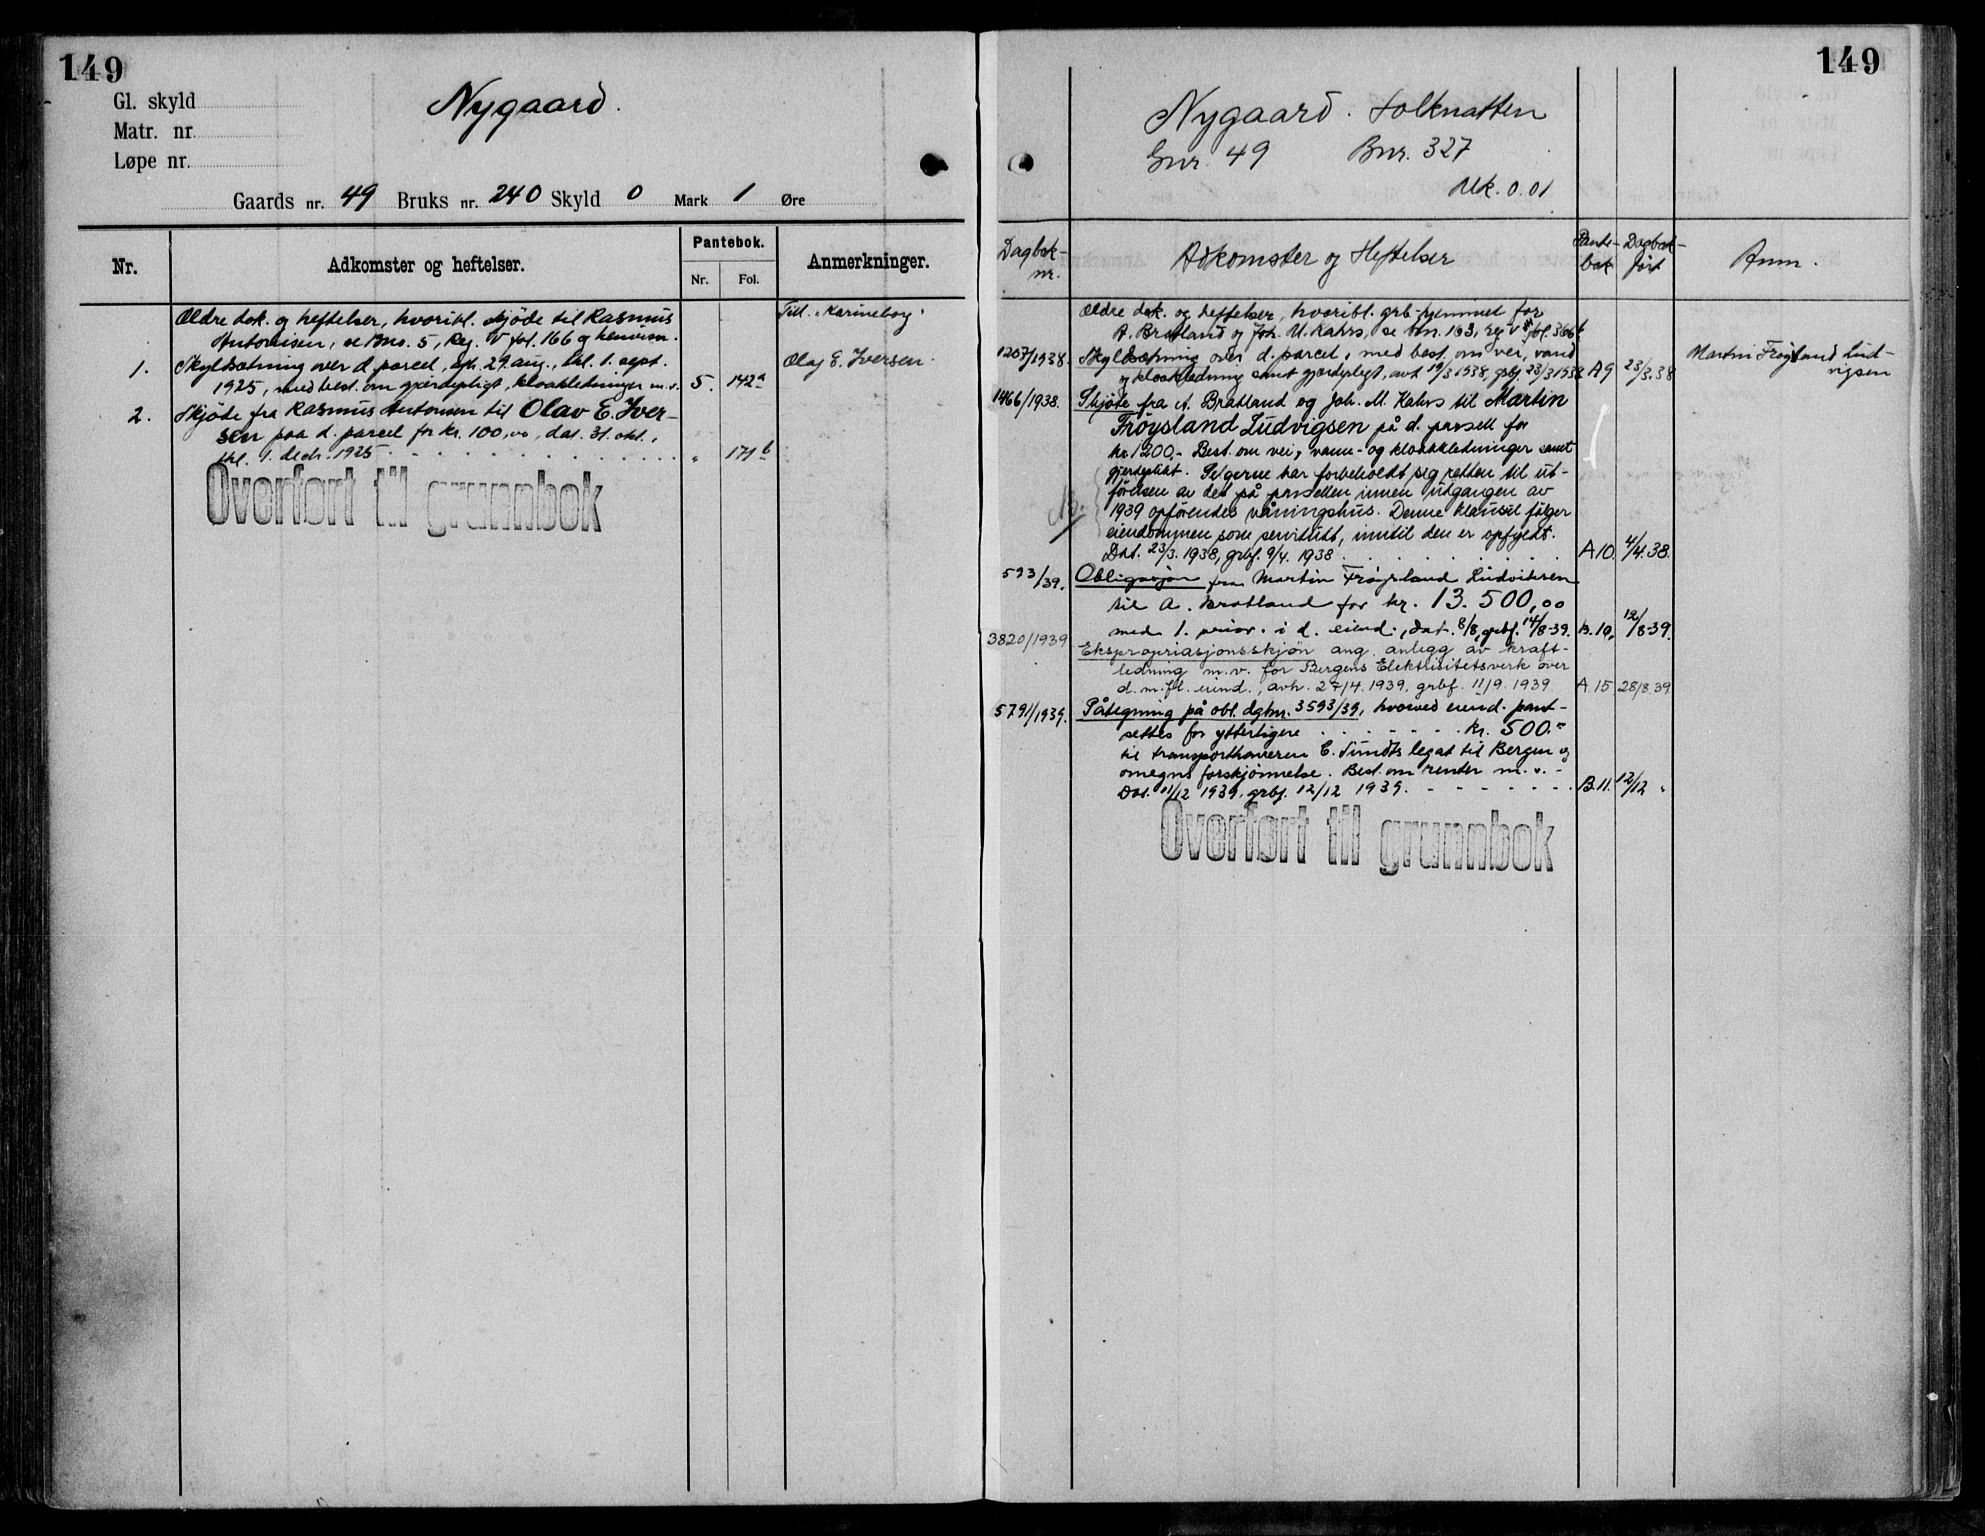 149
Gl. skyld
Matr. nr
Løpe nr.
Nygaard.
Gaards nr. 49 Bruks nr. 240 Skyld 0 Mark 1 Øre
Nr.
Adkomster og heftelser.
Pantebok.
Nr. Fol.
Anmerkninger.
Ældre dok. og heftelser, hvoribl. skjöde til Rasmus
Antonisen, se bno. 5, Reg. V fol. 166 og henvisn.
Till. "Karineborg"
1. Skyldsætning over d. parcel, afh. 29. aug., thl. 1. sept.
1925, med best. om gjerdepligt, kloakledninger m.v. 5. 142a
Olaf E. Iversen.
2. Skjöde fra Rasmus Antonsen til Olav E. Iver-
sen paa d. parcel for kr. 100,00, dat. 31. okt.,
thl. 1. decbr. 1925 " 171b
Overført til grunnbok
149
Nygaard. Solknatten
Gnr. 49 Bnr. 327
Mk. 0.01
Dagbok-
nr.
Adkomster og Heftelser
Pante-
bok
Dagbok-
ført
Anm.
Ældre dok. og heftelser, hvoribl. grb-hjemmel for
A. Bratland og Joh. M. Kahrs, se bnr. 163, reg V fol. 366b
1207/1938. Skyldsætning over d. parcel, med best. om vei, vand
og kloakledning samt gjerdepligt, avh 19/3 1938, grbf. 23/3 1938 A9 23/3.38
Martin Frøysland Lud-
vigsen
1466/1938. Skjöte fra A. Bratland og Joh. M. Kahrs til Martin
Fröysland Ludvigsen på d. parsell for
kr. 1200.- Best. om vei, vann- og kloakkledninger samt
gjerdeplikt. Selgerne har forbeholdt sig retten til ut-
förelsen av det på parsellen innen utgangen av
1939 opförendes våningshus. Denne klausul følger
eiendommen som servitutt, inntil den er opfyldt.
Dat. 23/3. 1938, grbf. 9/4. 1938 A10. 4/4.38.
593/39. Obligasjon fra Martin Frøysland Ludviksen
til A. Bratland for kr. 13.500,00
med 1. prior. i d. eiend., dat. 8/8, grbf. 14/8-39. B.10, 12/8-39.
3820/1939 Ekspropriasjonsskjøn ang. anlegg av kraft-
ledning m.v. for Bergens Elektrisitetsverk over
d. m.fl. eiend., avh. 27/4. 1939, grbf. 11/9. 1939. A.15 28/8.39
5791/1939. Påtegning på obl. dgbnr. 3593/39, hvorved eiend. pant-
settes for ytterligere kr. 500.-
til transporthaveren C. Sundts legat til Bergen og
omegns forskjønnelse. Best. om renter m.v. -
Dat. 11/12 1939, grbf. 12/12 1939. B.11. 12/12 "
Overført til grunnbok